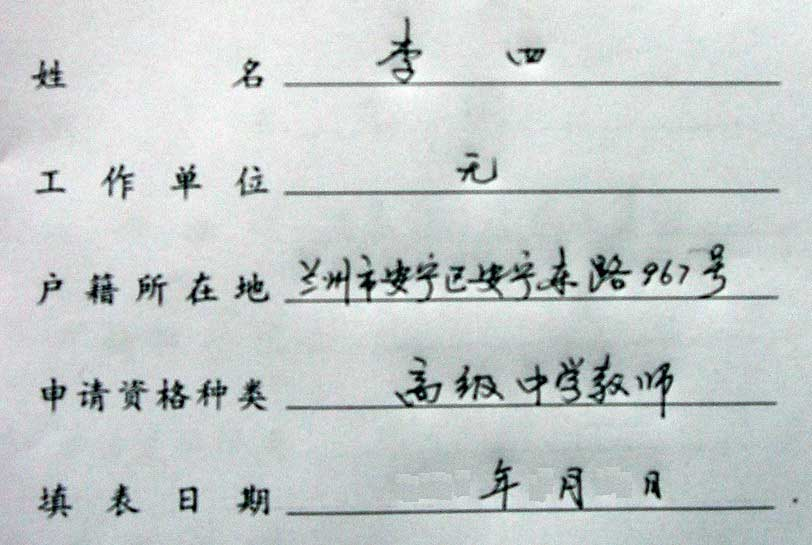 姓名 李四
工作单位 无
户籍所在地 兰州市安宁区安宁东路967号
申请资格种类 高级中学教师
填表日期 年月日